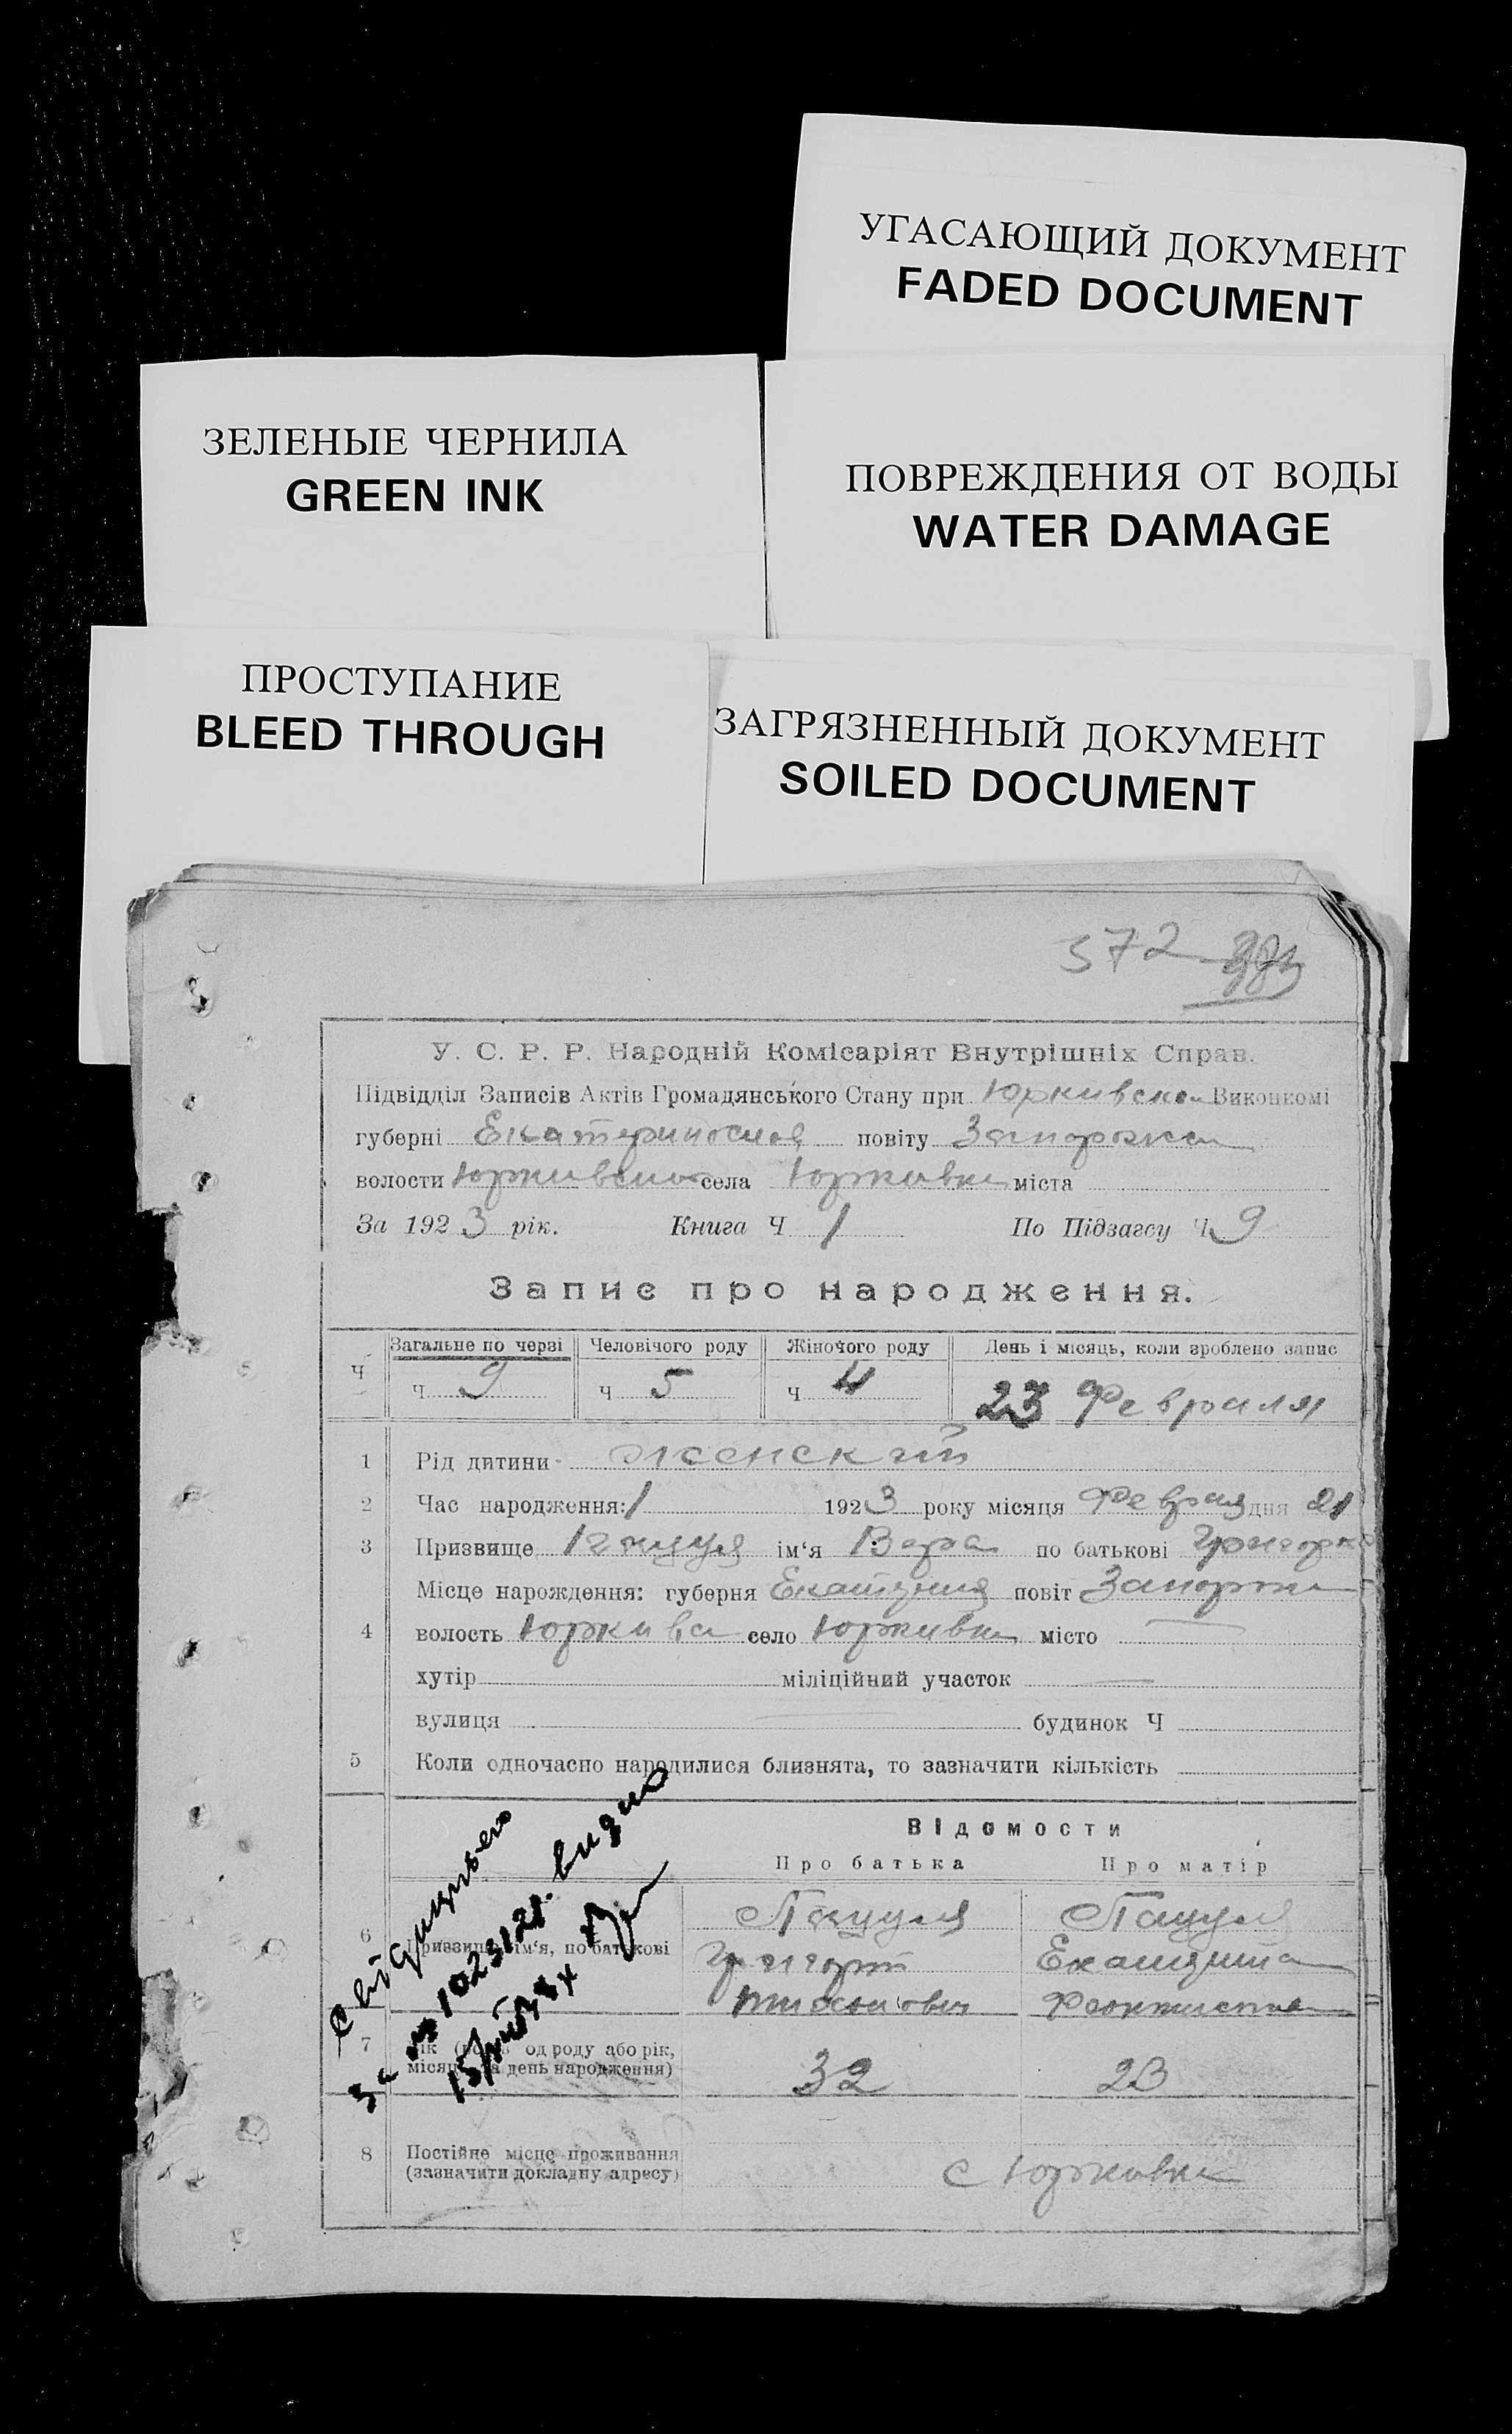 УГАСАЮЩИЙ ДОКУМЕНТ
FADED DOCUMENT
ЗЕЛЕНЫЕ ЧЕРНИЛА
GREEN INK
ПОВРЕЖДЕНИЯ ОТ ВОДЫ
WATER DAMAGE
ПРОСТУПАНИЕ
BLEED THROUGH
ЗАГРЯЗНЕННЫЙ ДОКУМЕНТ
SOILED DOCUMENT
572
У. С. Р. Р. Народній Комісаріят Внутрішніх Справ.
Підвідділ Записів Актів Громадянського Стану при Юркивском Виконкомі
губерні Екатеринослав повіту Запорожск
волости Юркивской села Юркивки міста
За 1923 рік. Книга Ч 1 По Підзагсу Ч 9
Запис про народження.
Ч Загальне по черзі Человічого роду Жіночого роду День і місяць, коли зроблено запис
Ч 9 Ч 5 Ч 4 23 Февраля
1 Рід дитини женский
2 Час народження: 1 1923 року місяця Февраля дня 21
3 Призвище ім‘я Вера по батькові
Місце нарождення: губерня повіт
4 волость Юркивка село Юркивка місто
хутір міліційний участок
вулиця будинок Ч
5 Коли одночасно народилися близнята, то зазначити кількість
Відомости
Про батька Про матір
6 Призвище, ім‘я, по батькові Пацуля Пацуля
Григорий Екатерина
7 од роду або рік, місяць та день народження) 32 23
8 Постійне місце проживання
(зазначити докладну адресу) с Юрковка